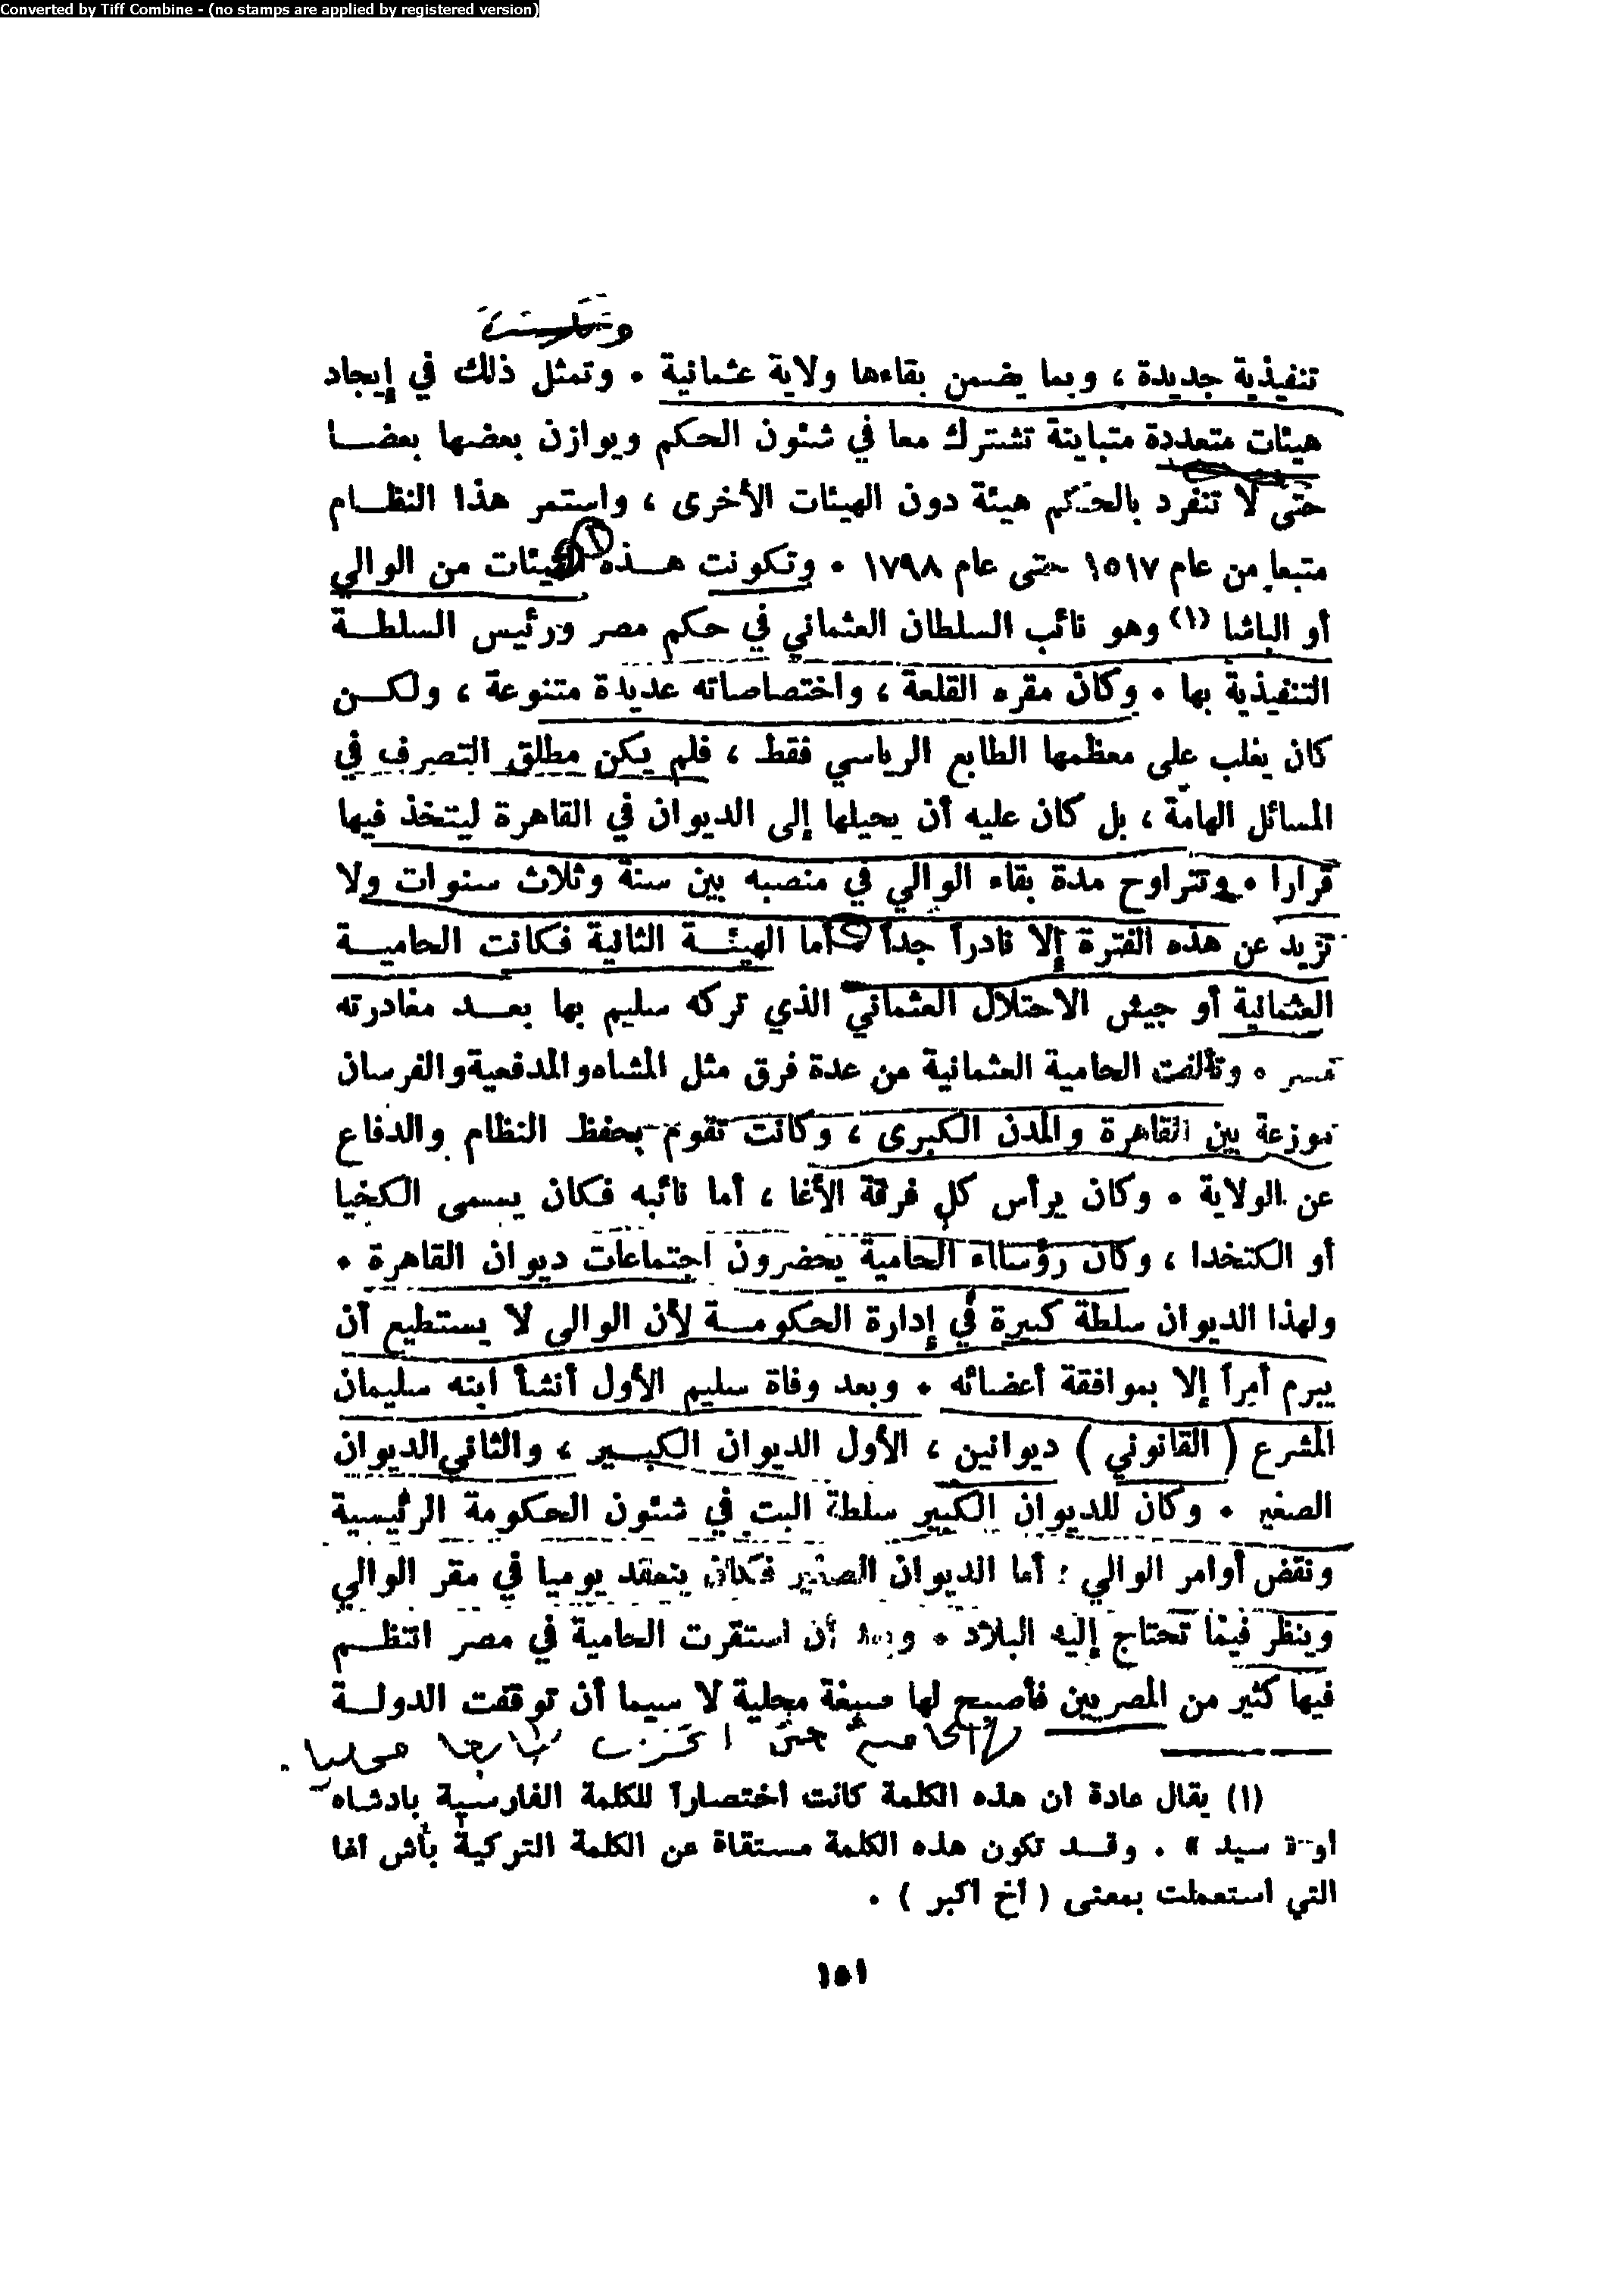 Converted by Tiff Combine - (no stamps are applied by registered version)
تنفيذية جديدة ، وبما يضمن بقاءها ولاية عثمانية . وتمثل ذلك في إيجاد
هيئات متعددة متباينة تشترك معا في شئون الحكم ويوازن بعضها بعضا
حتى لا تنفرد بالحكم هيئة دون الهيئات الأخرى ، واستمر هذا النظام
متبعا من عام ١٥١٧ حتى عام ١٧٩٨ . وتكونت هذه الهيئات من الوالي
أو الباشا (١) وهو نائب السلطان العثماني في حكم مصر ورئيس السلطة
التنفيذية بها . وكان مقره القلعة ، واختصاصاته عديدة متنوعة ، ولكن
كان يغلب على معظمها الطابع الرياسي فقط ، فلم يكن مطلق التصرف في
المسائل الهامة ، بل كان عليه أن يحيلها إلى الديوان في القاهرة ليتخذ فيها
قرارا . وتتراوح مدة بقاء الوالي في منصبه بين سنة وثلاث سنوات ولا
تزيد عن هذه الفترة إلا نادراً جداً . أما الهيئة الثانية فكانت الحامية
العثمانية أو جيش الاحتلال العثماني الذي تركه سليم بها بعد مغادرته
مصر . وتألفت الحامية العثمانية من عدة فرق مثل المشاه والمدفعية والفرسان
موزعة بين القاهرة والمدن الكبرى ، وكانت تقوم بحفظ النظام والدفاع
عن الولاية . وكان يرأس كل فرقة الأغا ، أما نائبه فكان يسمى الكخيا
أو الكتخدا ، وكان رؤساء الحامية يحضرون اجتماعات ديوان القاهرة .
ولهذا الديوان سلطة كبيرة في إدارة الحكومة لأن الوالى لا يستطيع أن
يبرم أمراً إلا بموافقة أعضائه . وبعد وفاة سليم الأول أنشأ ابنه سليمان
المشرع ( القانوني ) ديوانين ، الأول الديوان الكبير ، والثاني الديوان
الصغير . وكان للديوان الكبير سلطة البت في شئون الحكومة الرئيسية
ونقض أوامر الوالي ؛ أما الديوان الصغير فكان ينعقد يوميا في مقر الوالي
وينظر فيما تحتاج إليه البلاد . وبعد أن استقرت الحامية في مصر انتظم
فيها كثير من المصريين فأصبح لها صبغة محلية لا سيما أن توقفت الدولة
(١) يقال عادة ان هذه الكلمة كانت اختصاراً للكلمة الفارسية بادشاه
او سيد » . وقد تكون هذه الكلمة مستقاة عن الكلمة التركية باش آغا
التي استعملت بمعنى ( أخ اكبر ) .
١٥١